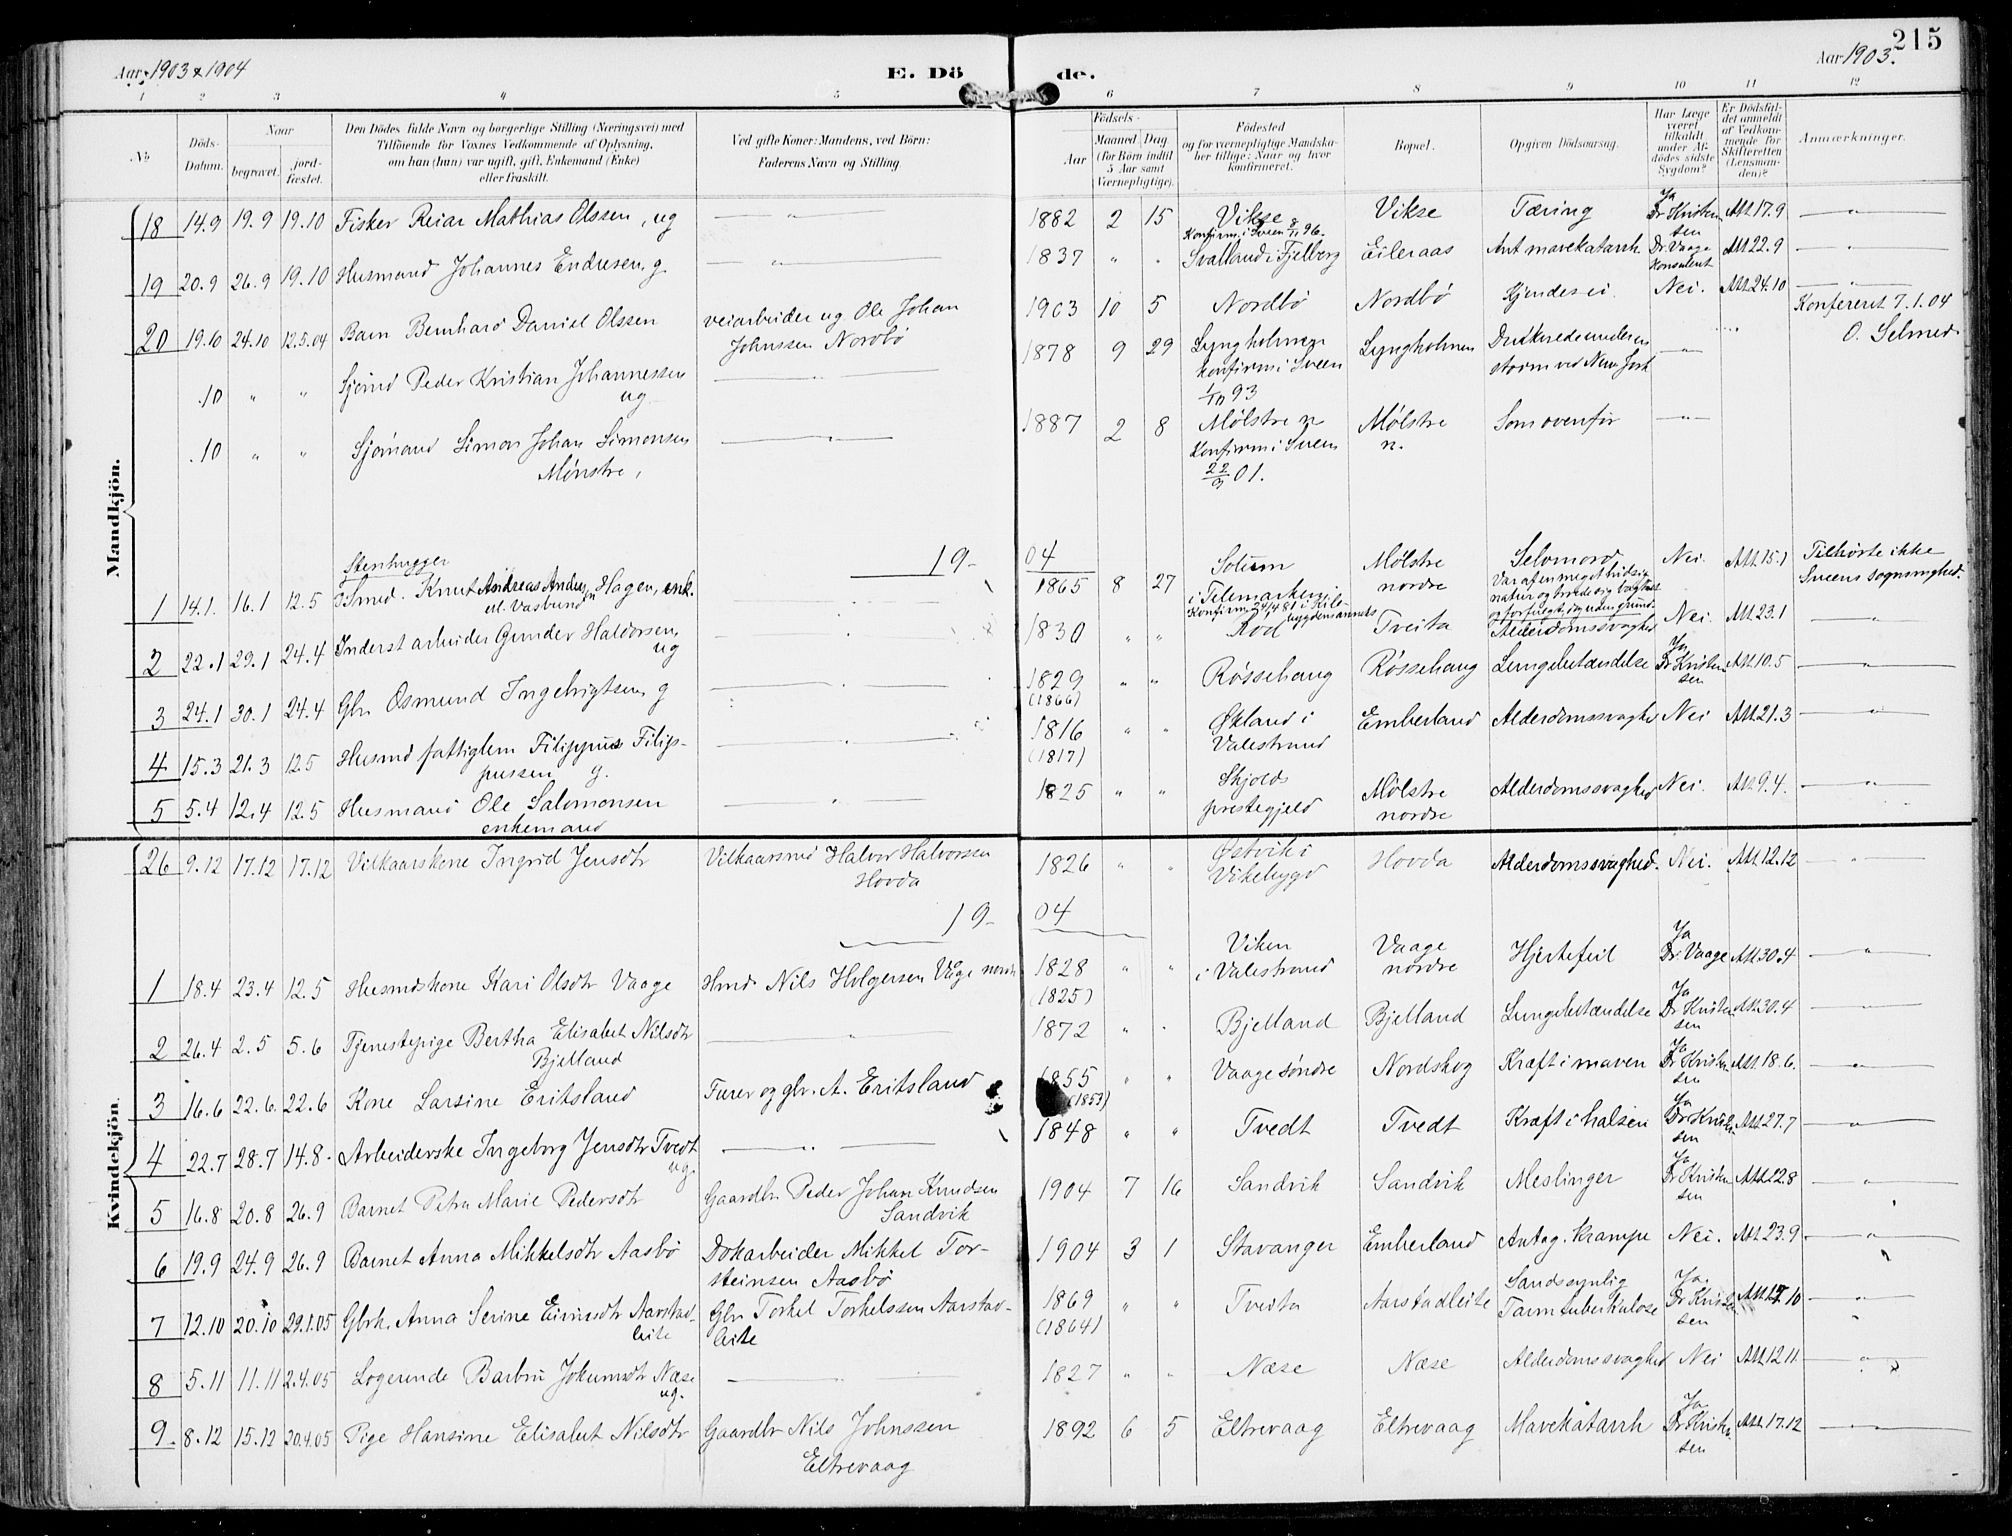 215
Aar 1903 & 1904
E. Dö de.
Aar 1903.
1 2 3 4 5 6 7 8 9 10 11 12
No
Döds-Datum.
Naar
begravet.
jord-fæstet.
Den Dödes fulde Navn og borgerlige Stilling (Næringsvei) med
Tilföiende for Voxnes Vedkommende af Oplysning,
om han (hun) var ugift, gift, Enkemand (Enke)
eller fraskilt.
Ved gifte Koner: Mandens, ved Börn:
Faderens Navn og Stilling.
Födsels-
Aar
Maaned Dag
(for Börn indtil
5 Aar samt
Værnepligtige).
Födested
og for værnepligtige Mandska-
ber tillige: Naar og hvor
konfirmeret.
Bopæl.
Opgiven Dödsaarsag.
Har Læge
været
tilkaldt
under Af-
dödes sidste
Sygdom?
Er Dödsfal-
det anmeldt
af Vedkom-
mende for
Skifteretten
(Lensman-
den)?
Anmærkninger.
Mandkjön.
18 14.9 19.9 19.10 Fisker Reiar Mathias Olssen, ug — " — 1882 2 15 Vikse Konfirm. i Sveen 8/11 96. Vikse Tæring Ja Dr Kristensen Att. 17.9 — " —
19 20.9 26.9 19.10 Husmand Johannes Endresen, g. — " — 1837 " " Svalland i Fjelberg Eileraas Ant mavekatarrh Dr. Vaage Konsulent Att. 22.9 — " —
20 19.10 24.10 12.5.04 Barn Bernhard Daniel Olssen veiarbeider ug Ole Johan Johnssen Nordbö 1903 10 5 Nordbö Nordbö Kjendes ei Nei. Att. 24.10 — " —
Konfereret 7.1.04
O. Selmed
.10 " " Sjömd Peder Kristian Johannessen ug — " — 1878 9 29 Lyngholmen konfirm i Sveen 1/10 93 Lyngholmen Druknede under en storm ved New York — " —
.10 " " Sjömand Simon Johan Simonsen Mönstre, — " — 1887 2 8 Mølstre n Konfirm i Sveen 22/9 01. Mølstre n. Som ovenfor — " —
19- 04
1 14.1. 16.1 12.5 Stenhugger Smed. Knut Andreas Anders Hagen, enk. 1865 8 27 Solum i Telemarken Konfirm. 24/4 81 i Kile- bygdens annex Mølstre nordre Selvmord Var af en meget hidsig natur Nei. Att. 15.1 Tilhørte ikke Sveens sognemenighed.
2 22.1 29.1 24.4 Inderst arbeider Gunder Haldorsen, ug 1830 " " Rød Tveita Alderdomssvaghed Nei. Att. 23.1 — " —
3 24.1 30.1 24.4 Gbr. Osmund Ingebrigtsen g 1829 (1866) " " Røssehaug Røssehaug Lungebetændelse Ja Dr Kristensen Att. 10.5 — " —
4 15.3 21.3 12.5 Husmd fattiglem Filippus Filip- pussen g. 1816 (1817) " " Økland i Valestrand Emberland Alderdomssvaghed Nei Att. 21.3 — " —
5 5.4 12.4 12.5 Husmand Ole Salomonsen enkemand — " — 1825 " " Skjolds prestegjeld Mølstre nordre Alderdomssvaghed Nei. Att. 9.4. — " —
Kvindekjön.
26 9.12 17.12 17.12 Vilkaarskone Ingrid Jensdtr Vilkaarsmd Halvor Halvorssen Hovda 1826 " " Østvik i Vikebygd Hovda Alderdomssvaghed. Nei. Att. 12.12 — " —
19- 04
1 18.4 23.4 12.5 Husmdskone Kari Olsdtr Vaage Hmd. Nils Holgersen Våge nordr 1828 (1825) " " Viken i Valestrand Vaage nordre Hjertefeil Ja Dr. Vaage Att. 30.4 — " —
2 26.4 2.5 5.6 Tjenestepige Bertha Elisabet Nilsdtr Bjelland — " — 1872 " " Bjelland Bjelland Lungebetændelse Ja Dr Kristensen Att. 30.4 — " —
3 16.6 22.6. 22.6 Kone Larsine Eritsland Furer og gbr. A. Eritsland 1855 (1853) " " Vaage søndre Nordskog Kræft i maven Ja Dr Kristensen Att. 18.6. — " —
4 22.7 28.7 14.8. Arbeiderske Ingeborg Jensdtr Tvedt ug. — " — 1848 " " Tvedt Tvedt Kræft i halsen Ja Dr Kristensen Att. 27.7 — " —
5 16.8 20.8 26.9 Barnet Petra Marie Pedersdtr Gaardbr. Peder Johan Knudsen Sandvik 1904 7 16 Sandvik Sandvik Meslinger Ja Dr Kristensen Att. 22.8 — " —
6 19.9 24.9 26.9 Barnet Anna Mikkelsdtr Aasbö Dokarbeider Mikkel Tor- steinsen Aasbö 1904 3 1 Stavanger Emberland Antag. krampe Nei. Att. 23.9 — " —
7 12.10 20.10 29.1.05 Gbrk. Anna Serine Eirinsdtr Aarstad- leite Gbr Torkel Torkelssen Aarstad- leite 1869 (1864) " " Tveita Aarstadleite Sandsynlig Tarmtuberkulose Ja Dr Kristensen Att. 17.10 — " —
8 5.11 11.11 2.4.05 Logerende Barbru Jokumsdtr Næse ug. — 1827 " " Næse Næse Alderdomssvaghed Nei Att. 12.11. — " —
9 8.12 15.12 20.4.05 Pige Hansine Elisabet Nilsdtr Gaardbr Nils Johnssen Eltrevaag 1892 6 5 Eltrevaag Eltrevaag Mavekatarrh Ja Dr Kristensen Att. 17.12 — " —